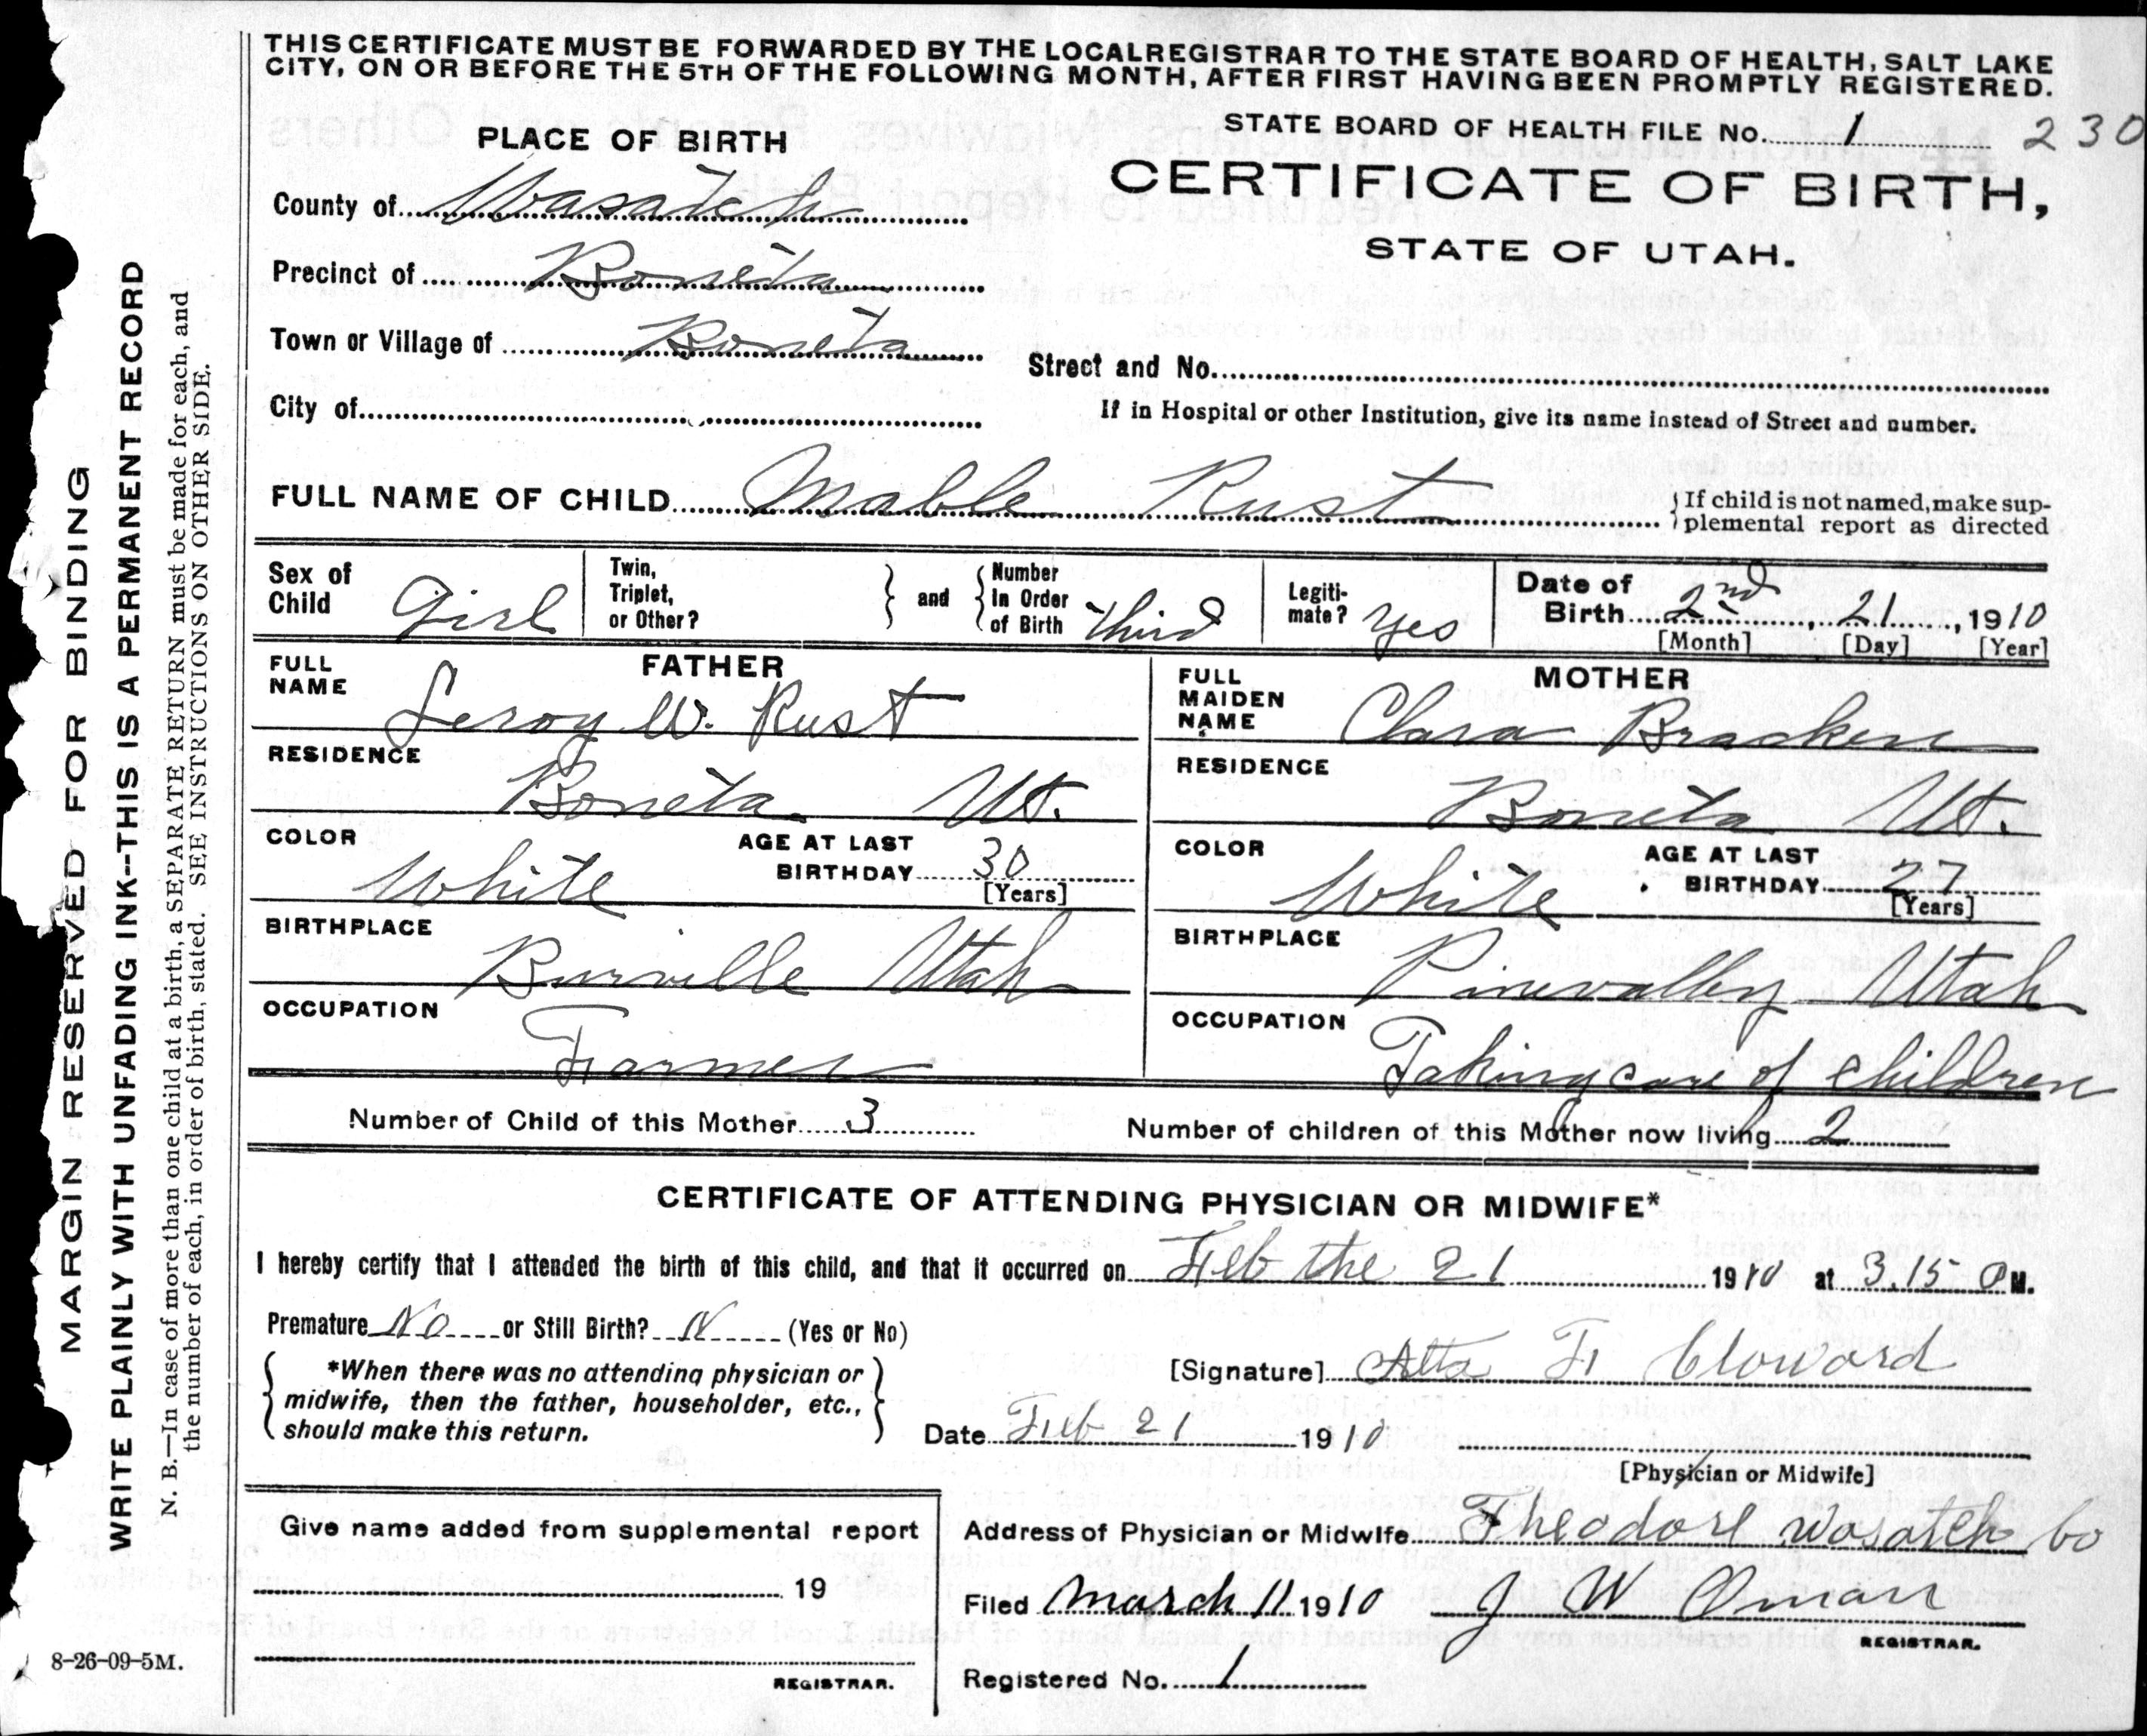 THIS CERTIFICATE MUST BE FORWARDED BY THE LOCAL REGISTRAR TO THE STATE BOARD OF HEALTH, SALT LAKE
CITY, ON OR BEFORE THE 5TH OF THE FOLLOWING MONTH, AFTER FIRST HAVING BEEN PROMPTLY REGISTERED.
STATE BOARD OF HEALTH FILE No. 1 230
PLACE OF BIRTH
CERTIFICATE OF BIRTH,
STATE OF UTAH.
County of Wasatch
Precinct of Boneta
Town or Village of Boneta
Street and No.
City of
If in Hospital or other Institution, give its name instead of Street and number.
FULL NAME OF CHILD Mable Rust
If child is not named, make sup-
plemental report as directed
Sex of Child Girl
Twin, Triplet, or Other?
and
Number In Order of Birth third
Legiti-
mate? yes
Date of Birth 2nd, 21, 1910
[Month] [Day] [Year]
FATHER
FULL NAME Leroy W. Rust
RESIDENCE Boneta Ut.
COLOR White
AGE AT LAST BIRTHDAY 30
[Years]
BIRTHPLACE Burrville Utah
OCCUPATION Farmer
MOTHER
FULL MAIDEN NAME Clara Bracken
RESIDENCE Boneta Ut.
COLOR White
AGE AT LAST BIRTHDAY 27
[Years]
BIRTHPLACE Pinevalley Utah
OCCUPATION Taking care of children
Number of Child of this Mother 3
Number of children of this Mother now living 2
CERTIFICATE OF ATTENDING PHYSICIAN OR MIDWIFE*
I hereby certify that I attended the birth of this child, and that it occurred on Feb the 21 1910 at 3.15 PM.
Premature No or Still Birth? N (Yes or No)
*When there was no attending physician or
midwife, then the father, householder, etc.,
should make this return.
[Signature] Alta F Cloward
Date Feb 21 1910
[Physician or Midwife]
Give name added from supplemental report
19
REGISTRAR.
Address of Physician or Midwife Theodore Wasatch Co
Filed March 11 1910 J W Oman
REGISTRAR.
Registered No. 1
8-26-09-5M.
MARGIN RESERVED FOR BINDING
WRITE PLAINLY WITH UNFADING INK--THIS IS A PERMANENT RECORD
N. B.—In case of more than one child at a birth, a SEPARATE RETURN must be made for each, and
the number of each, in order of birth, stated. SEE INSTRUCTIONS ON OTHER SIDE.